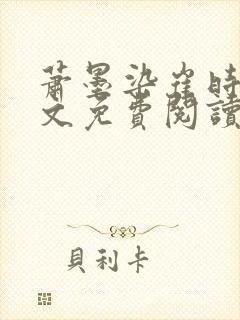 蕭墨染崔時
文免費閱讀
貝利卡